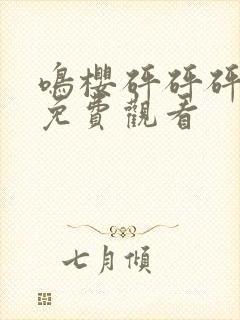 鳴櫻砰砰砰
免費觀看
七月傾